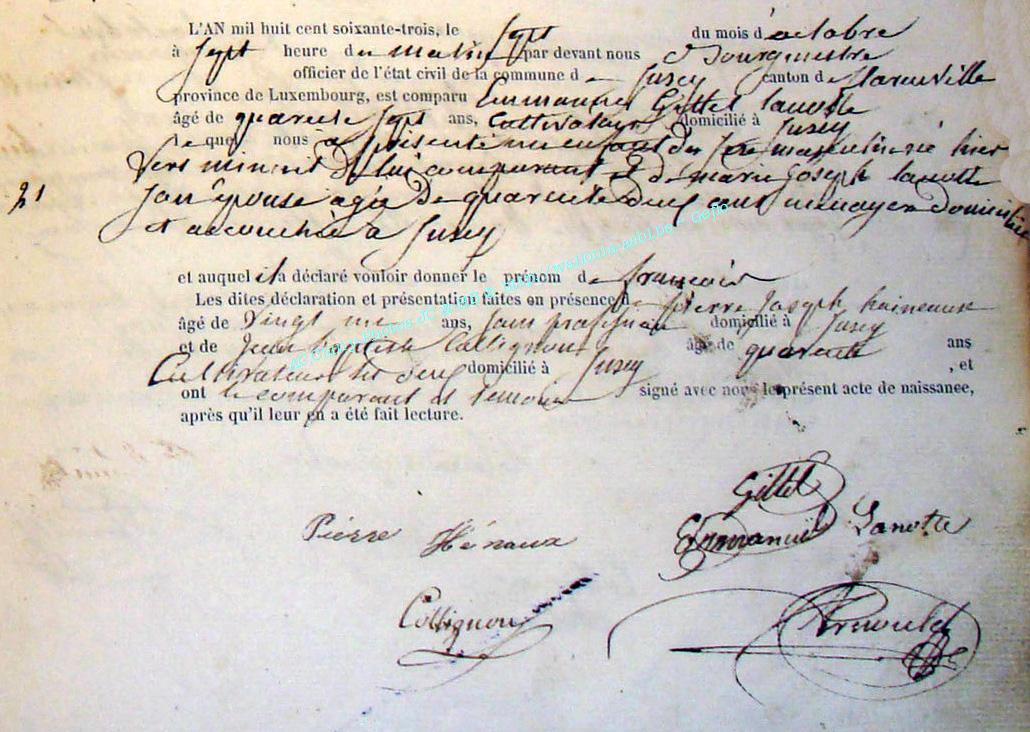 L'AN mil huit cent soixante-trois, le sept du mois d'octobre
à sept heure du matin par devant nous Bourgmestre
officier de l'état civil de la commune de Jusey canton de
province de Luxembourg, est comparu Emmanuel Gillet Lanotte
âgé de quarente sept ans, Cultivateur domicilié à Jusey
le quel nous a présenté un enfant du sexe masculin né hier
vers minuit de lui comparant et de marie Joseph Lanotte
21
son épouse agée de quarente deux ans ménagere domiciliée
et accouchée à Jusey
et auquel il a déclaré vouloir donner le prénom de françois
Les dites déclaration et présentation faites en présence de pierre Joseph haineaux
âgé de vingt un ans, sans profession domicilié à Jusey
et de Jean baptiste Collignon âgé de quarente ans
Cultivateur les deux domicilié à Jusey , et
ont le comparant et temoins signé avec nous le présent acte de naissance,
après qu'il leur en a été fait lecture.
Gillet
Pierre Hénaux Emmanuel Lanotte
Collignon